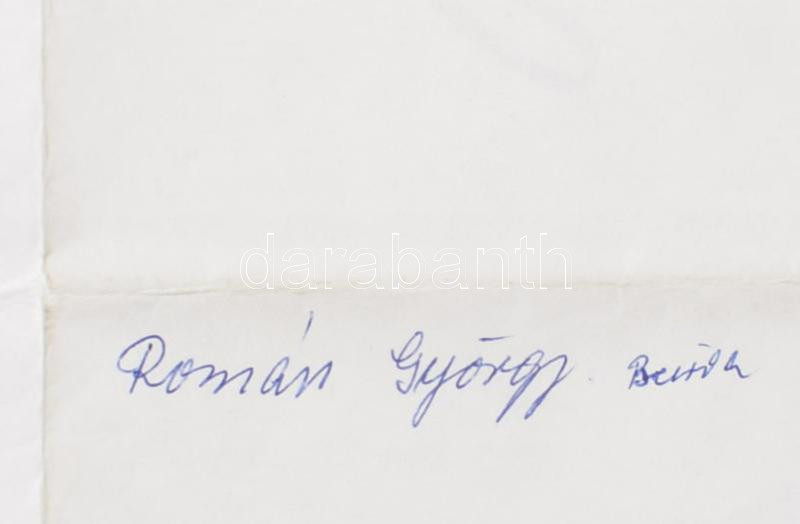 darabanth
Román György.